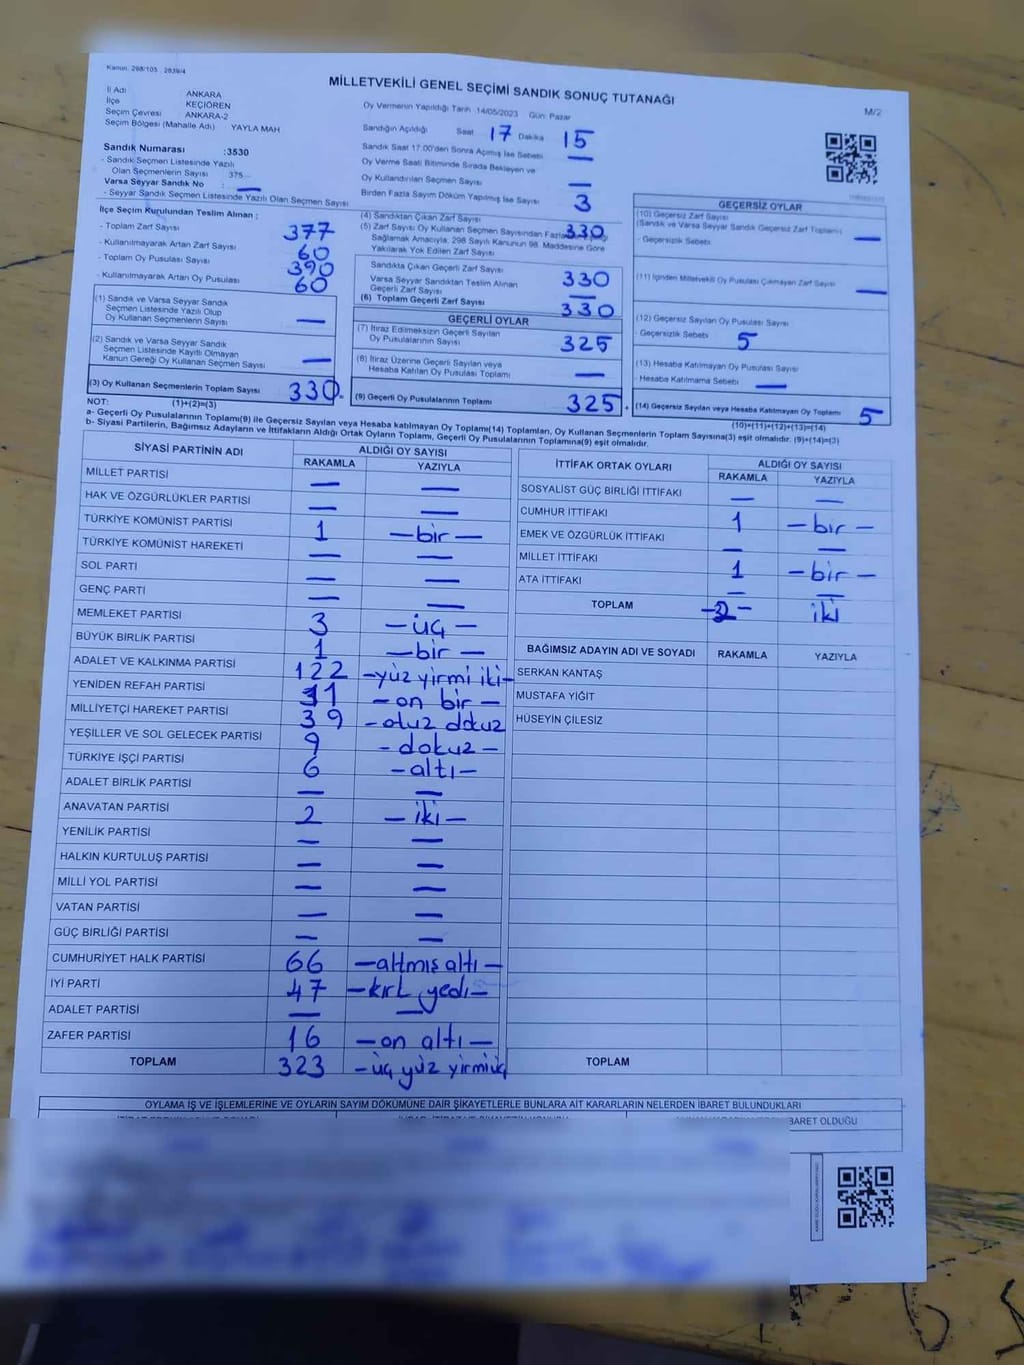 Kanun: 298/105 2839/4
MİLLETVEKİLİ GENEL SEÇİMİ SANDIK SONUÇ TUTANAĞI
M/2
İl Adı ANKARA
İlçe KEÇİÖREN
Seçim Çevresi ANKARA-2
Seçim Bölgesi (Mahalle Adı) YAYLA MAH
Sandık Numarası :3530
- Sandık Seçmen Listesinde Yazılı
Olan Seçmenlerin Sayısı 375
Varsa Seyyar Sandık No : —
- Seyyar Sandık Seçmen Listesinde Yazılı Olan Seçmen Sayısı
Oy Vermenin Yapıldığı Tarih :14/05/2023 Gün: Pazar
Sandığın Açıldığı Saat 17 Dakika 15
Sandık Saat 17.00'den Sonra Açılmış İse Sebebi —
Oy Verme Saati Bitiminde Sırada Bekleyen ve
Oy Kullandırılan Seçmen Sayısı —
Birden Fazla Sayım Döküm Yapılmış İse Sayısı 3
İlçe Seçim Kurulundan Teslim Alınan :
- Toplam Zarf Sayısı 377
- Kullanılmayarak Artan Zarf Sayısı 60
- Toplam Oy Pusulası Sayısı 390
- Kullanılmayarak Artan Oy Pusulası 60
(1) Sandık ve Varsa Seyyar Sandık
Seçmen Listesinde Yazılı Olup
Oy Kullanan Seçmenlerin Sayısı —
(2) Sandık ve Varsa Seyyar Sandık
Seçmen Listesinde Kayıtlı Olmayan
Kanun Gereği Oy Kullanan Seçmen Sayısı —
(3) Oy Kullanan Seçmenlerin Toplam Sayısı 330
(4) Sandıktan Çıkan Zarf Sayısı 330
(5) Zarf Sayısı Oy Kullanan Seçmen Sayısından
Sağlamak Amacıyla, 298 Sayılı Kanunun 98. Maddesine Göre
Yakılarak Yok Edilen Zarf Sayısı
Sandıkta Çıkan Geçerli Zarf Sayısı 330
Varsa Seyyar Sandıktan Teslim Alınan
Geçerli Zarf Sayısı —
(6) Toplam Geçerli Zarf Sayısı 330
GEÇERLİ OYLAR
(7) İtiraz Edilmeksizin Geçerli Sayılan
Oy Pusulalarının Sayısı 325
(8) İtiraz Üzerine Geçerli Sayılan veya
Hesaba Katılan Oy Pusulası Toplamı —
(9) Geçerli Oy Pusulalarının Toplamı 325
GEÇERSİZ OYLAR
(10) Geçersiz Zarf Sayısı
(Sandık ve Varsa Seyyar Sandık Geçersiz Zarf Toplamı) —
- Geçersizlik Sebebi
(11) İçinden Milletvekili Oy Pusulası Çıkmayan Zarf Sayısı —
(12) Geçersiz Sayılan Oy Pusulası Sayısı
- Geçersizlik Sebebi 5
(13) Hesaba Katılmayan Oy Pusulası Sayısı
- Hesaba Katılmama Sebebi —
(14) Geçersiz Sayılan veya Hesaba Katılmayan Oy Toplamı 5
NOT: (1)+(2)=(3)
(10)+(11)+(12)+(13)=(14)
a- Geçerli Oy Pusulalarının Toplamı(9) ile Geçersiz Sayılan veya Hesaba katılmayan Oy Toplamı(14) Toplamları, Oy Kullanan Seçmenlerin Toplam Sayısına(3) eşit olmalıdır. (9)+(14)=(3)
b- Siyasi Partilerin, Bağımsız Adayların ve İttifakların Aldığı Ortak Oyların Toplamı, Geçerli Oy Pusulalarının Toplamına(9) eşit olmalıdır.
SİYASİ PARTİNİN ADI ALDIĞI OY SAYISI
RAKAMLA YAZIYLA
MİLLET PARTİSİ — —
HAK VE ÖZGÜRLÜKLER PARTİSİ — —
TÜRKİYE KOMÜNİST PARTİSİ 1 —bir—
TÜRKİYE KOMÜNİST HAREKETİ — —
SOL PARTİ — —
GENÇ PARTİ — —
MEMLEKET PARTİSİ 3 —üç—
BÜYÜK BİRLİK PARTİSİ 1 —bir—
ADALET VE KALKINMA PARTİSİ 122 —yüz yirmi iki—
YENİDEN REFAH PARTİSİ 11 —on bir—
MİLLİYETÇİ HAREKET PARTİSİ 39 —otuz dokuz
YEŞİLLER VE SOL GELECEK PARTİSİ 9 —dokuz—
TÜRKİYE İŞÇİ PARTİSİ 6 —altı—
ADALET BİRLİK PARTİSİ — —
ANAVATAN PARTİSİ 2 —iki—
YENİLİK PARTİSİ — —
HALKIN KURTULUŞ PARTİSİ — —
MİLLİ YOL PARTİSİ — —
VATAN PARTİSİ — —
GÜÇ BİRLİĞİ PARTİSİ — —
CUMHURİYET HALK PARTİSİ 66 —altmış altı—
İYİ PARTİ 47 —kırk yedi—
ADALET PARTİSİ — —
ZAFER PARTİSİ 16 —on altı—
TOPLAM 323 —üç yüz yirmi üç
İTTİFAK ORTAK OYLARI ALDIĞI OY SAYISI
RAKAMLA YAZIYLA
SOSYALİST GÜÇ BİRLİĞİ İTTİFAKI — —
CUMHUR İTTİFAKI 1 —bir—
EMEK VE ÖZGÜRLÜK İTTİFAKI — —
MİLLET İTTİFAKI 1 —bir—
ATA İTTİFAKI — —
TOPLAM —2— iki
BAĞIMSIZ ADAYIN ADI VE SOYADI RAKAMLA YAZIYLA
SERKAN KANTAŞ
MUSTAFA YİĞİT
HÜSEYİN ÇİLESİZ
TOPLAM
OYLAMA İŞ VE İŞLEMLERİNE VE OYLARIN SAYIM DÖKÜMÜNE DAİR ŞİKAYETLERLE BUNLARA AİT KARARLARIN NELERDEN İBARET BULUNDUKLARI
İBARET OLDUĞU